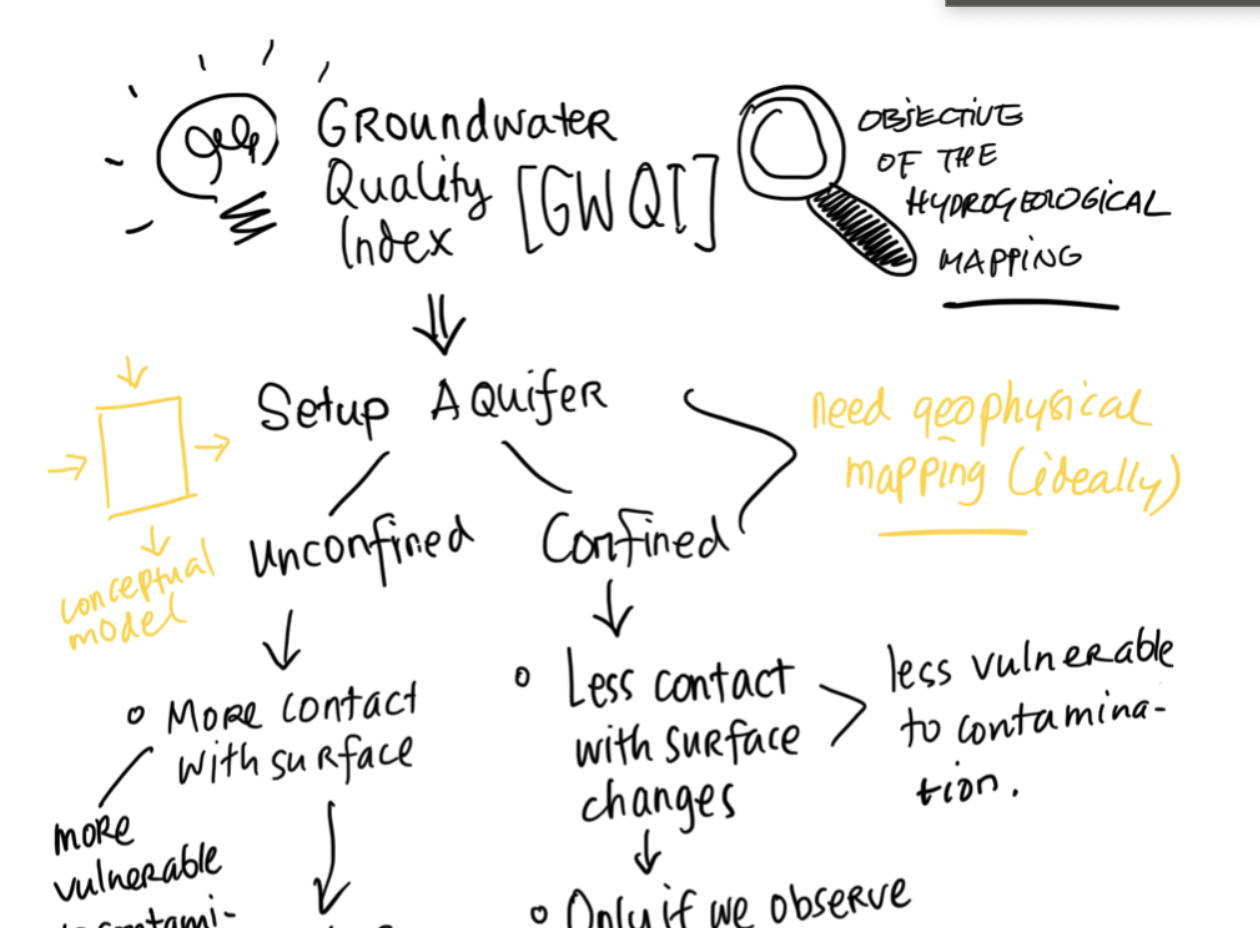 Groundwater
Quality
Index
[GWQI]
OBJECTIVE
OF THE
HYDROGEOLOGICAL
MAPPING
Setup Aquifer
need geophysical
mapping (ideally)
conceptual
model
Unconfined
Confined
More contact
with surface
more
vulnerable
to contami-
Less contact
with surface
changes
less vulnerable
to contamina-
tion.
Only if we observe